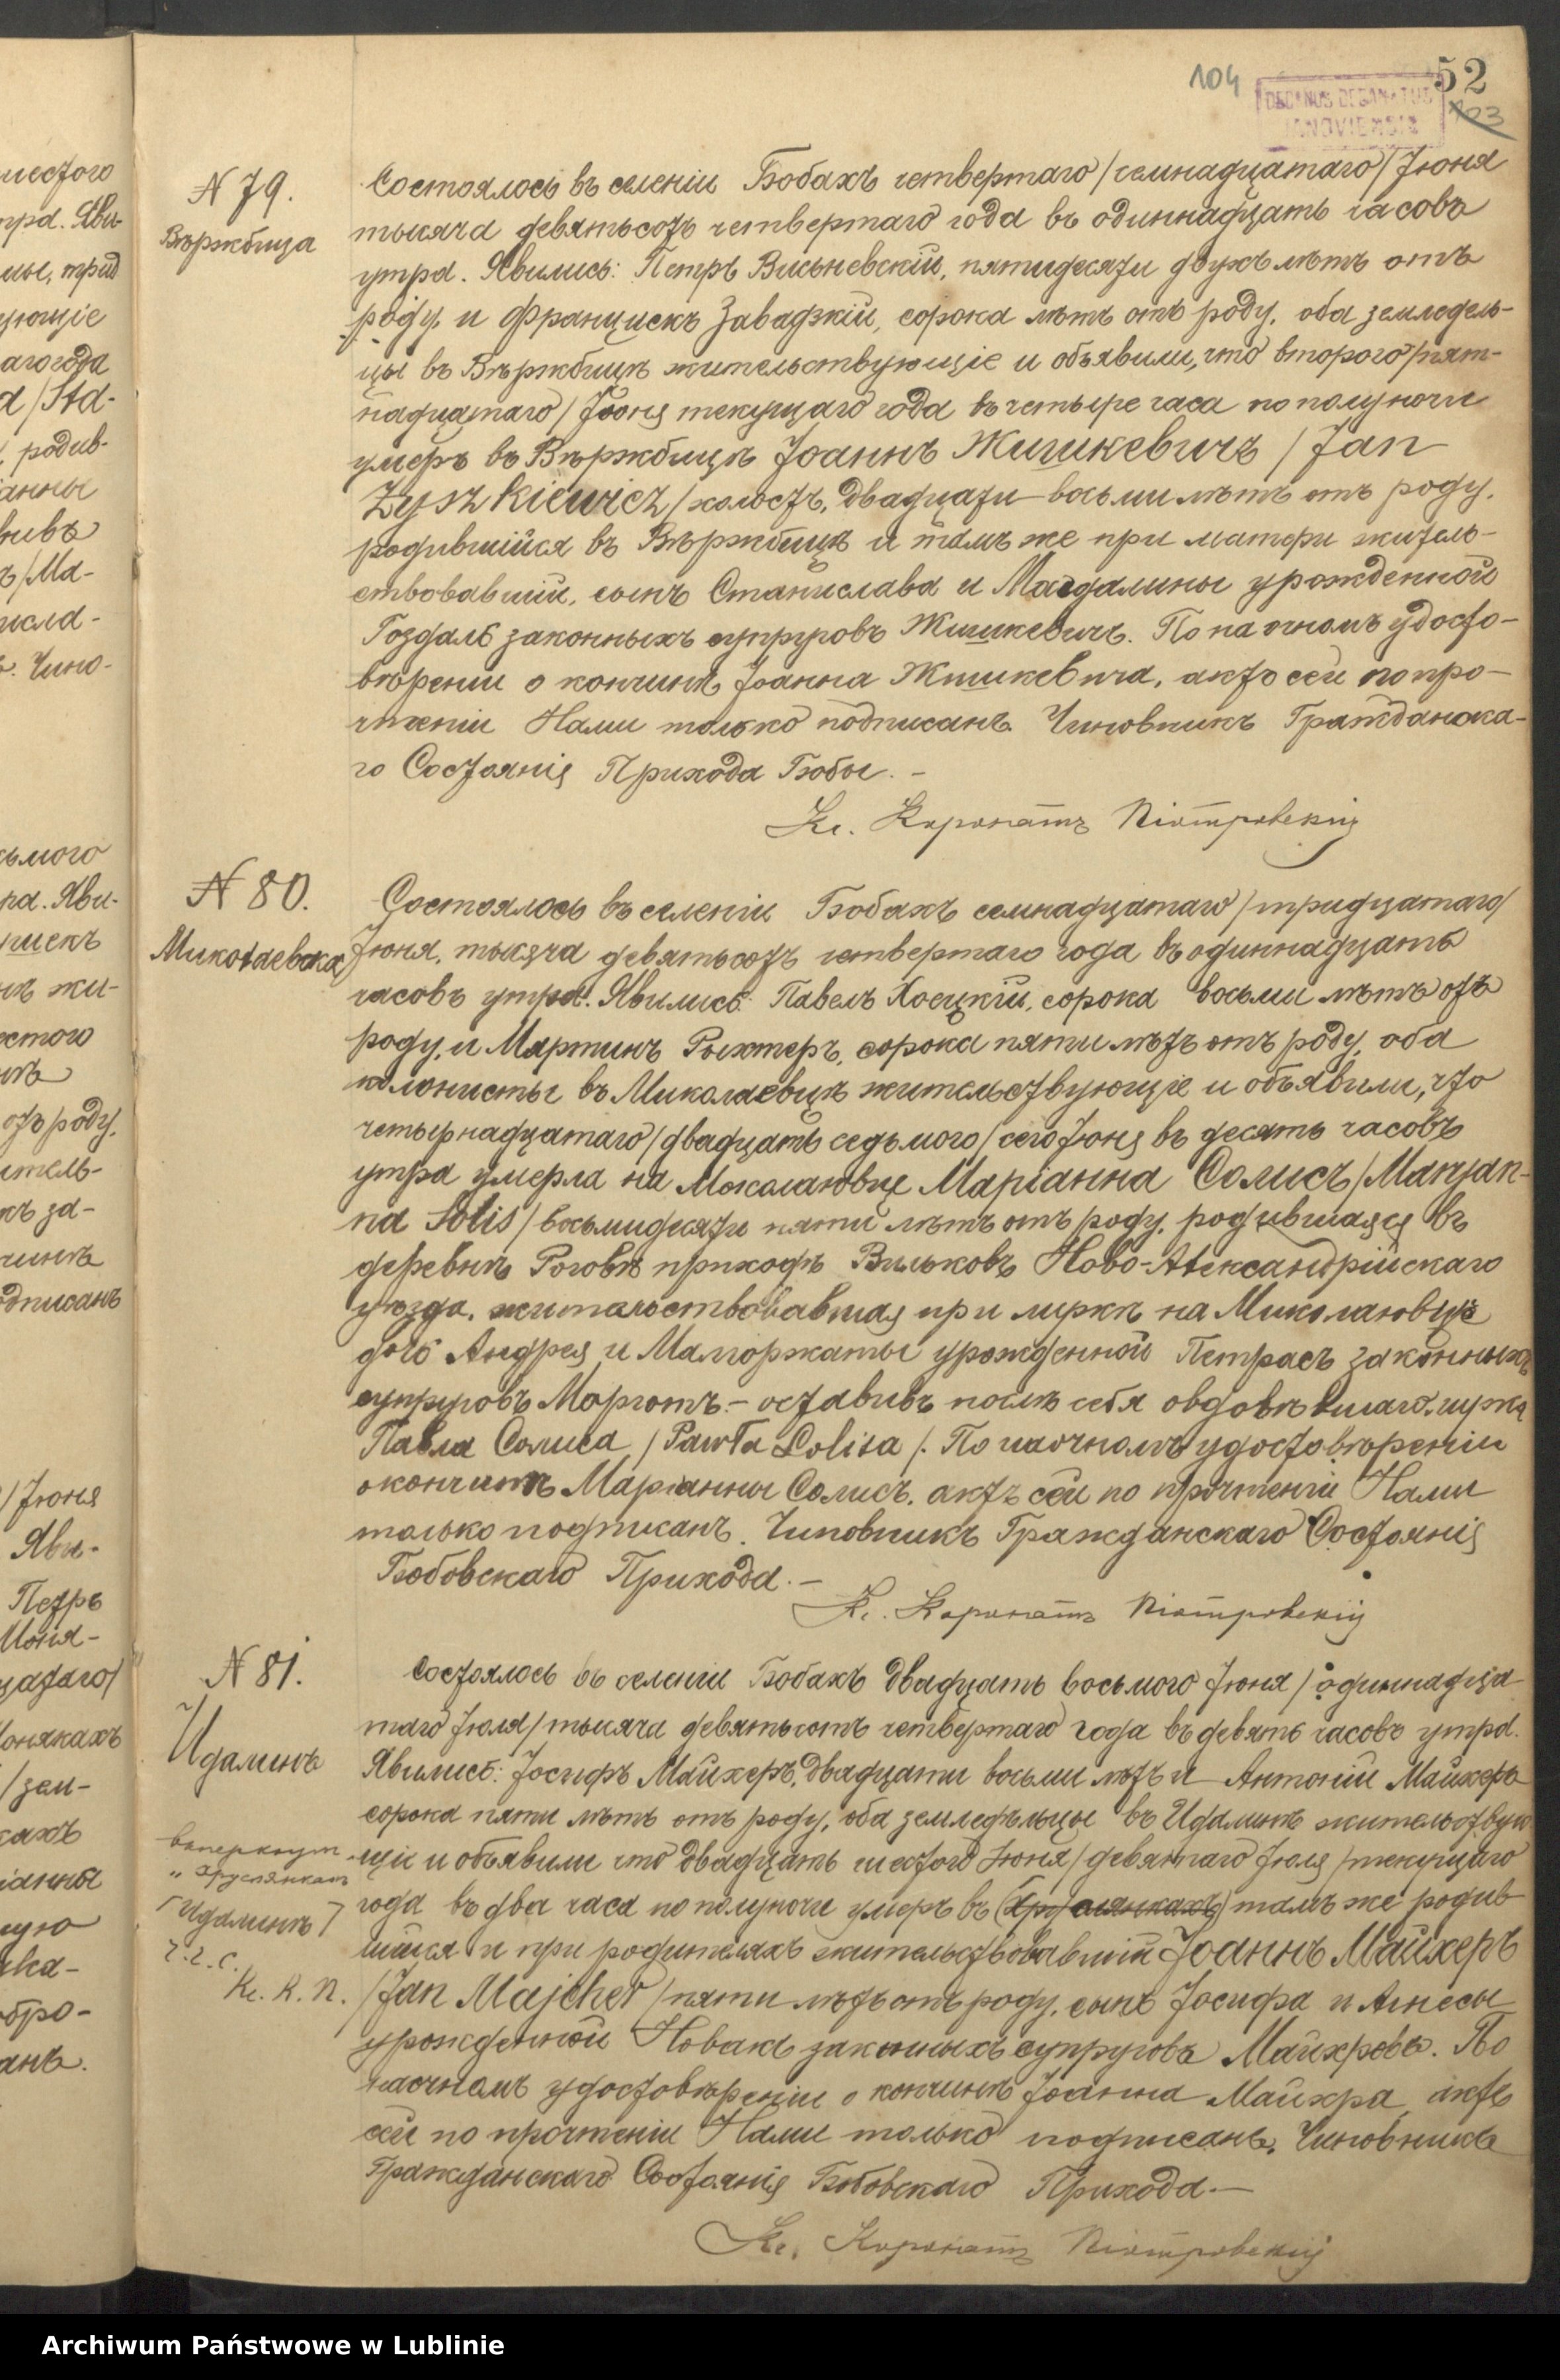 104
52
103
DECANUS DECANATUS
JANOVIENSIS
N 79.
Вържбица
Состоялось въ селеніи Бобахъ четвертаго /семнадцатаго/ Іюня
тысяча девятьсотъ четвертаго года въ одиннадцать часовъ
утра. Явились: Петръ Висьневскій, пятидесяти двухъ лѣтъ отъ
роду, и Францискъ Завадзкій, сорока лѣтъ отъ роду, оба земледель-
цы въ Вържбицѣ жительствующіе и объявили, что второго /пят-
надцатаго/ Іюня текущаго года въ четыре часа по полуночи
умеръ въ Вържбицѣ Іоаннъ Жишкевичъ /Jan
Żyszkiewicz/ холостъ, двадцати восьми лѣтъ отъ роду,
родившійся въ Вържбицѣ и тамъ же при матери житель-
ствовавшій, сынъ Станислава и Магдалины урожденной
Гоздаль законныхъ супруговъ Жишкевичъ. По наочномъ удосто-
вѣреніи о кончинѣ Іоанна Жишкевича, актъ сей по про-
чтеніи Нами только подписанъ. Чиновникъ Гражданска-
го Состоянія Прихода Бобы. -
Кс. Коронатъ Піотровскій
N 80.
Микоłаевка
Состоялось въ селеніи Бобахъ семнадцатаго /тридцатаго/
Іюня, тысяча девятьсотъ четвертаго года въ одиннадцать
часовъ утра. Явились: Павелъ Хоецкій, сорока восьми лѣтъ отъ
роду, и Мартинъ Рыхтеръ, сорока пяти лѣтъ отъ роду, оба
колонисты въ Миколаевцѣ жительствующіе и объявили, что
четырнадцатаго /двадцать седьмого/ сего Іюня въ десять часовъ
утра умерла на Миколаювце Маріанна Солисъ /Maryan-
na Solis/ восьмидесяти пяти лѣтъ отъ роду, родившаяся въ
деревнѣ Роговѣ приходѣ Вильковъ Ново-Александрійскаго
уѣзда, жительствовавшая при мужѣ на Миколаювце
дочь Андрея и Малгоржаты урожденной Петрасъ законныхъ
супруговъ Марготъ. - оставивъ послѣ себя овдовѣвшаго мужа
Павла Солиса /Pawła Solisa/. По наочномъ удостовѣреніи
о кончинѣ Маріанны Солисъ, актъ сей по прочтеніи Нами
только подписанъ. Чиновникъ Гражданскаго Состоянія
Бобовскаго Прихода. -
Кс. Коронатъ Піотровскій
N 81.
Идалинъ
Состоялось въ селеніи Бобахъ двадцать восьмого Іюня /одиннадца-
таго Іюля/ тысяча девятьсотъ четвертаго года въ девять часовъ утра.
Явились: Іосифъ Майхеръ, двадцати восьми лѣтъ и Антоній Майхеръ
сорока пяти лѣтъ отъ роду, оба земледѣльцы въ Идалинѣ жительствую-
щіе и объявили что двадцать шестого Іюня /девятаго Іюля/ текущаго
года въ два часа по полуночи умеръ въ (Хруслянкахъ) тамъ же родив-
шійся и при родителяхъ жительствовавшій Іоаннъ Майхеръ
/Jan Majcher/ пяти лѣтъ отъ роду, сынъ Іосифа и Агнесы
урожденной Новакъ законныхъ супруговъ Майхровъ. По
наочномъ удостовѣреніи о кончинѣ Іоанна Майхра, актъ
сей по прочтеніи Нами только подписанъ. Чиновникъ
Гражданскаго Состоянія Бобовскаго Прихода. -
Кс. Коронатъ Піотровскій
" Хруслянкахъ
/Идалинѣ/
Ч. Г. С.
Кс. К. П.
Archiwum Państwowe w Lublinie